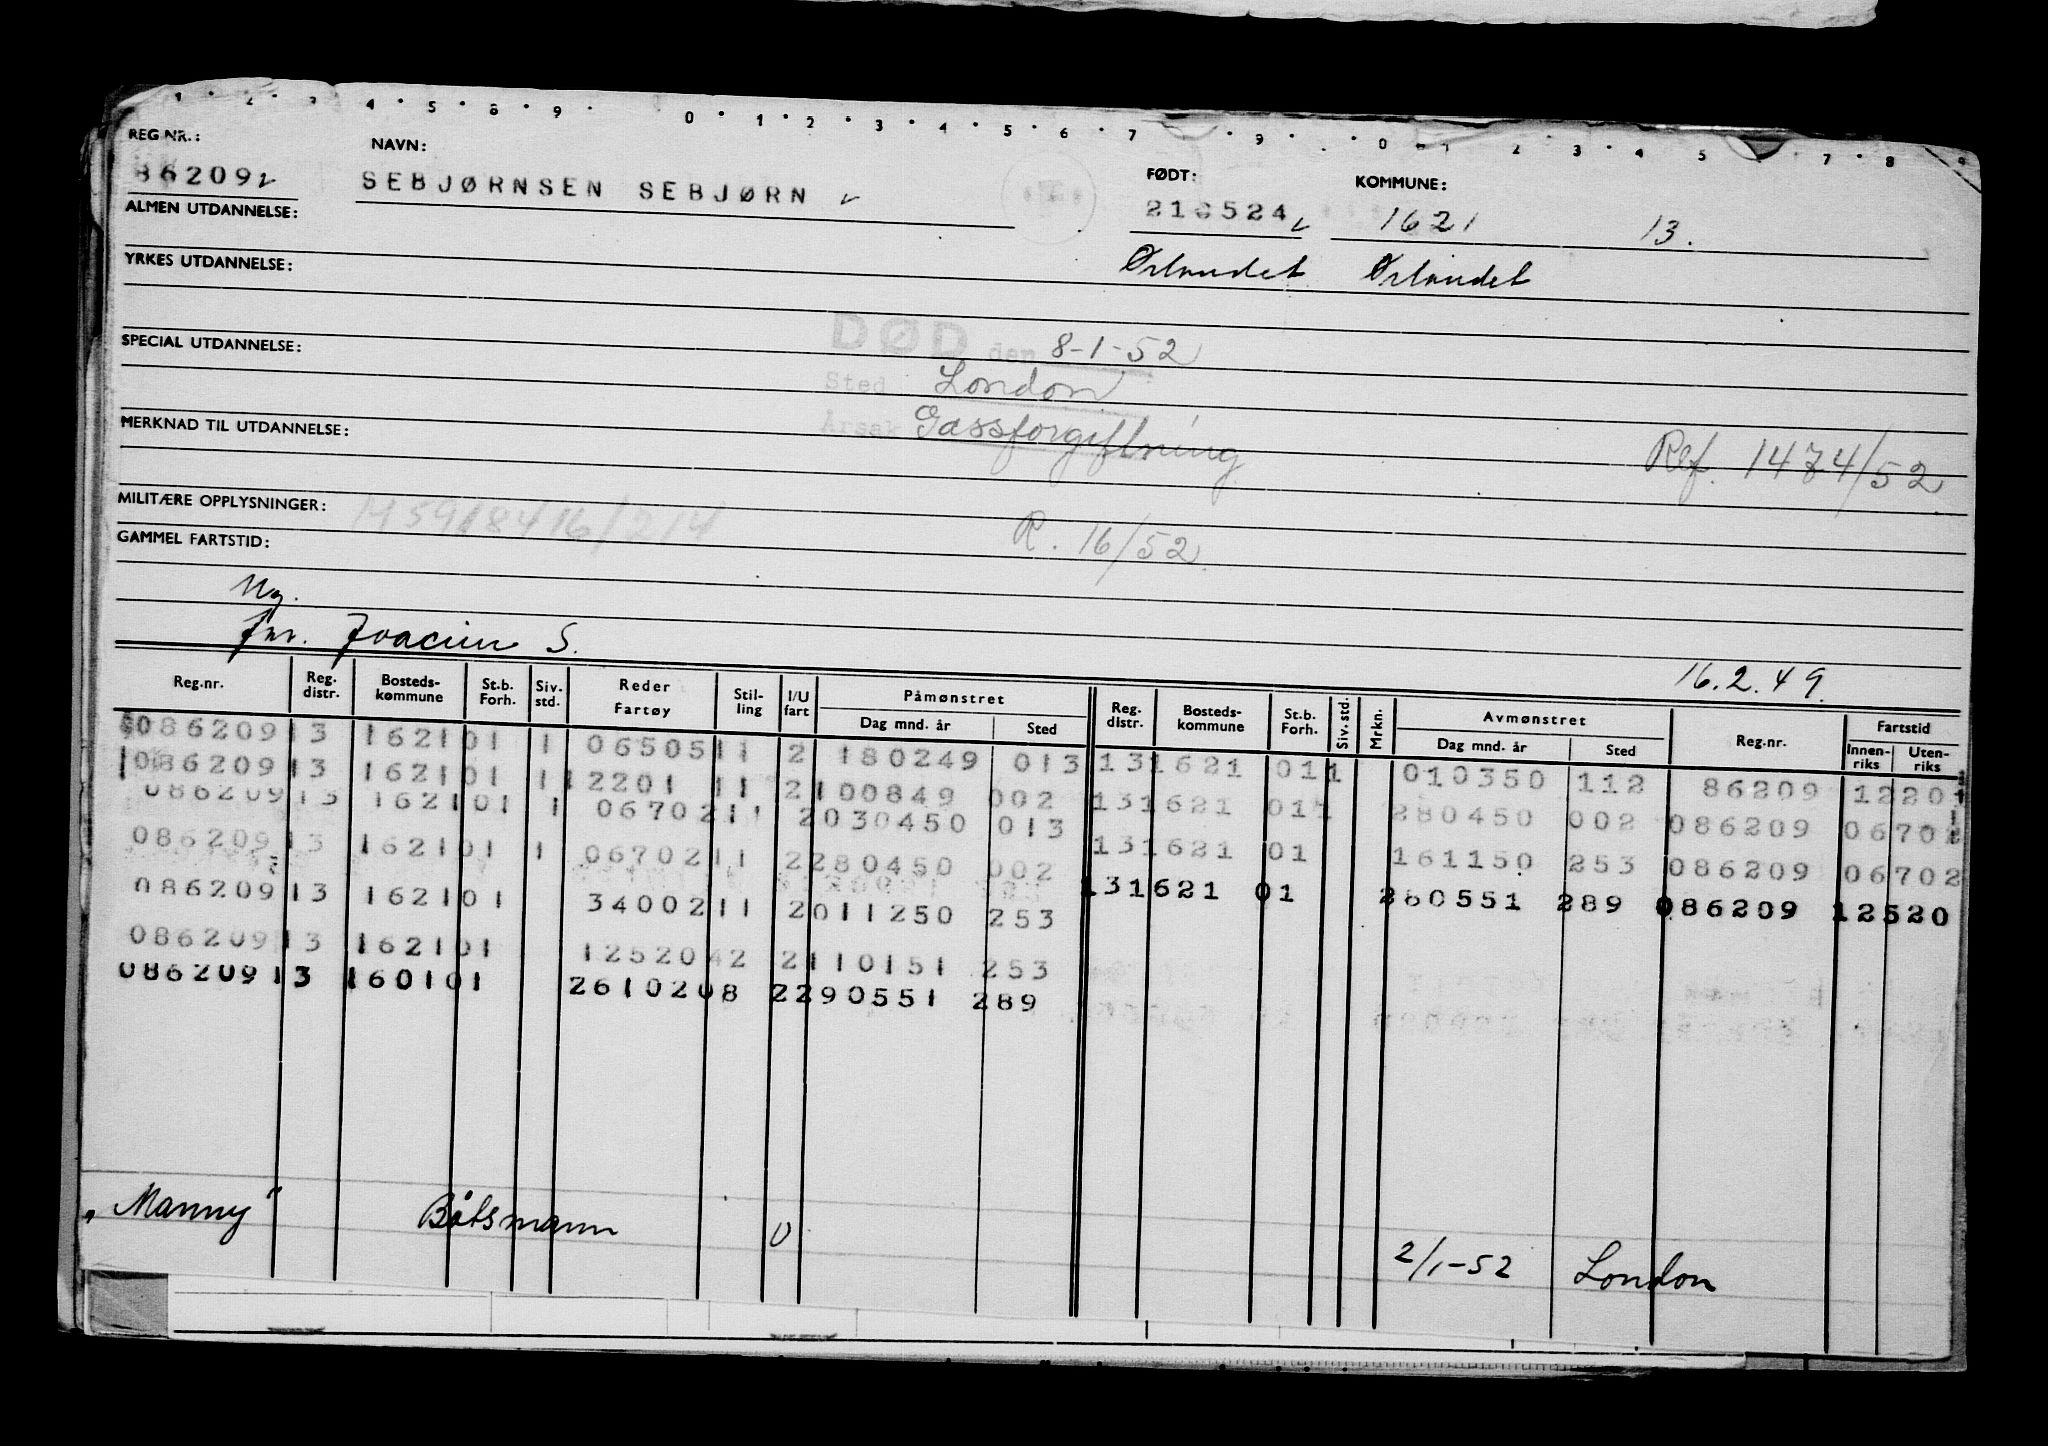 1 2 3 4 5 6 9 0 1 2 3 4 5 6 7 9 0 1 2 3 4 5 7 8 9
REG.NR.: NAVN: FØDT: KOMMUNE:
86209 SEBJØRNSEN SEBJØRN 210524 1621 13.
ALMEN UTDANNELSE:
Ørlandet Ørlandet
YRKES UTDANNELSE:
DØD den 8-1-52
SPECIAL UTDANNELSE:
Sted London
Årsak Gassforgiftning
MERKNAD TIL UTDANNELSE: Ref. 1474/52
MILITÆRE OPPLYSNINGER:
R. 16/52
GAMMEL FARTSTID:
Ny.
Joacim S.
16.2.49.
Reg.nr. Reg. distr. Bosteds-kommune St.b. Forh. Siv. std. Reder Fartøy Stil-ling I/U fart Påmønstret Dag mnd. år Sted Reg. distr. Bosteds-kommune St.b. Forh. Siv. std. Mrkn. Avmønstret Dag mnd. år Sted Reg.nr. Fartstid Innen-riks Uten-riks
086209 13 1621 01 1 06505 11 2 180249 013 13 1621 01 1 010350 112 86209 12201
086209 13 1621 01 1 12201 11 2 100849 002 13 1621 01 1 280450 002 086209 06702
086209 13 1621 01 1 06702 11 2 030450 013 13 1621 01 161150 253 086209 06702
086209 13 1621 01 1 06702 11 2 280450 002 13 1621 01 280551 289 086209 12520
086209 13 1621 01 34002 11 2 011250 253
086209 13 1621 01 12520 42 2 110151 253
086209 13 1601 01 26102 08 2 290551 289
"Manny" Båtsmann U 2/1-52 London